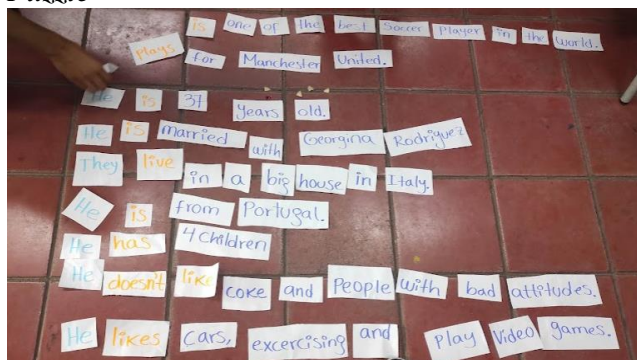 is one of the best Soccer Player in the world.
plays for Manchester United.
He is 37 years old.
He is married with Georgina Rodriguez
They live in a big house in Italy.
He is from Portugal.
He has 4 children
He doesn't like coke and People with bad attitudes.
He likes cars, excercising and play Video games.